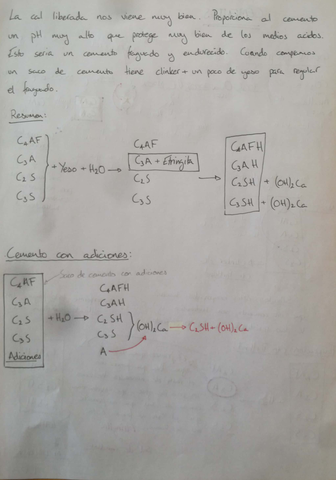 La cal liberada nos viene muy bien. Proporciona al cemento
un pH muy alto que protege muy bien de los medios acidos.
Esto seria un cemento fraguado y endurecido. Cuando compramos
un saco de cemento tiene clinker + un poco de yeso para regular
el fraguado.
Resumen:
C₄AF C₄AF C₄AFH
C₃A + Yeso + H₂O → C₃A + Etringita → C₃AH
C₂S C₂S C₂SH + (OH)₂Ca
C₃S C₃S C₃SH + (OH)₂Ca
Cemento con adiciones:
Saco de cemento con adiciones
C₄AF C₄AFH
C₃A C₃AH
C₂S + H₂O → C₂SH
C₃S C₃S (OH)₂Ca → C₂SH + (OH)₂Ca
Adiciones A